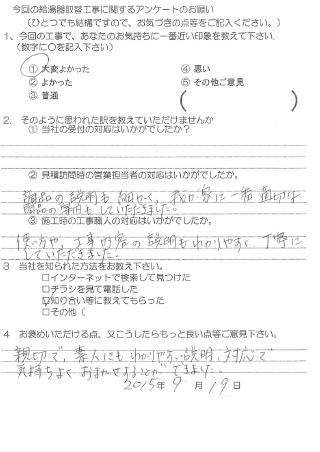 今回の給湯器取替工事に関するアンケートのお願い
（ひとつでも結構ですので、お気づきの点等をご記入ください。）
1、今回の工事で、あなたのお気持ちに一番近い印象を教えて下さい。
（数字に〇を記入下さい）
① 大変よかった ④ 悪い
② よかった ⑤ その他ご意見
③ 普通 （ ）
2． そのように思われた訳を教えていただけませんか
① 当社の受付の対応はいかがでしたか？
② 見積訪問時の営業担当者の対応はいかがでしたか。
商品の説明も細かく、我が家に一番適切な
商品の案内もしていただきました。
③ 施工時の工事職人の対応はいかがでしたか？
使い方や、工事内容の説明もわかりやすく、丁寧に
していただきました。
3 当社を知られた方法をお教え下さい。
□インターネットで検索して見つけた
□チラシを見て電話した
☑知り合い等に教えてもらった
□その他（
4 お褒めいただける点、又こうしたらもっと良い点等ご意見下さい。
親切で、素人にもわかりやすい説明、対応で
気持ちよくおまかせすることができました。
2015年 9 月 19 日